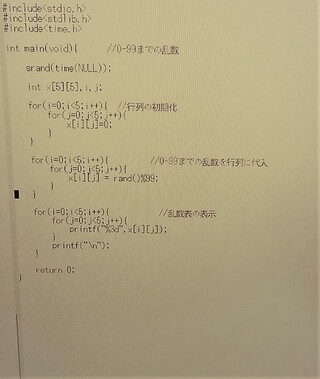 #include<stdio.h>
#include<stdlib.h>
#include<time.h>
int main(void){ //0-99までの乱数
srand(time(NULL));
int x[5][5],i,j;
for(i=0;i<5;i++){ //行列の初期化
for(j=0;j<5;j++){
x[i][j]=0;
}
}
for(i=0;i<5;i++){ //0-99までの乱数を行列に代入
for(j=0;j<5;j++){
x[i][j] = rand()%99;
}
}
for(i=0;i<5;i++){ //乱数表の表示
for(j=0;j<5;j++){
printf("%3d",x[i][j]);
}
printf("\n");
}
return 0;
}